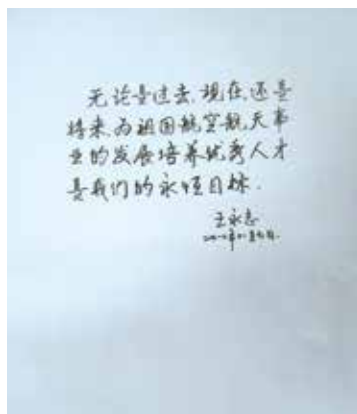 无论是过去、现在、还是
将来,为祖国航空航天事
业的发展培养优秀人才
是我们的永恒目标.
王永志